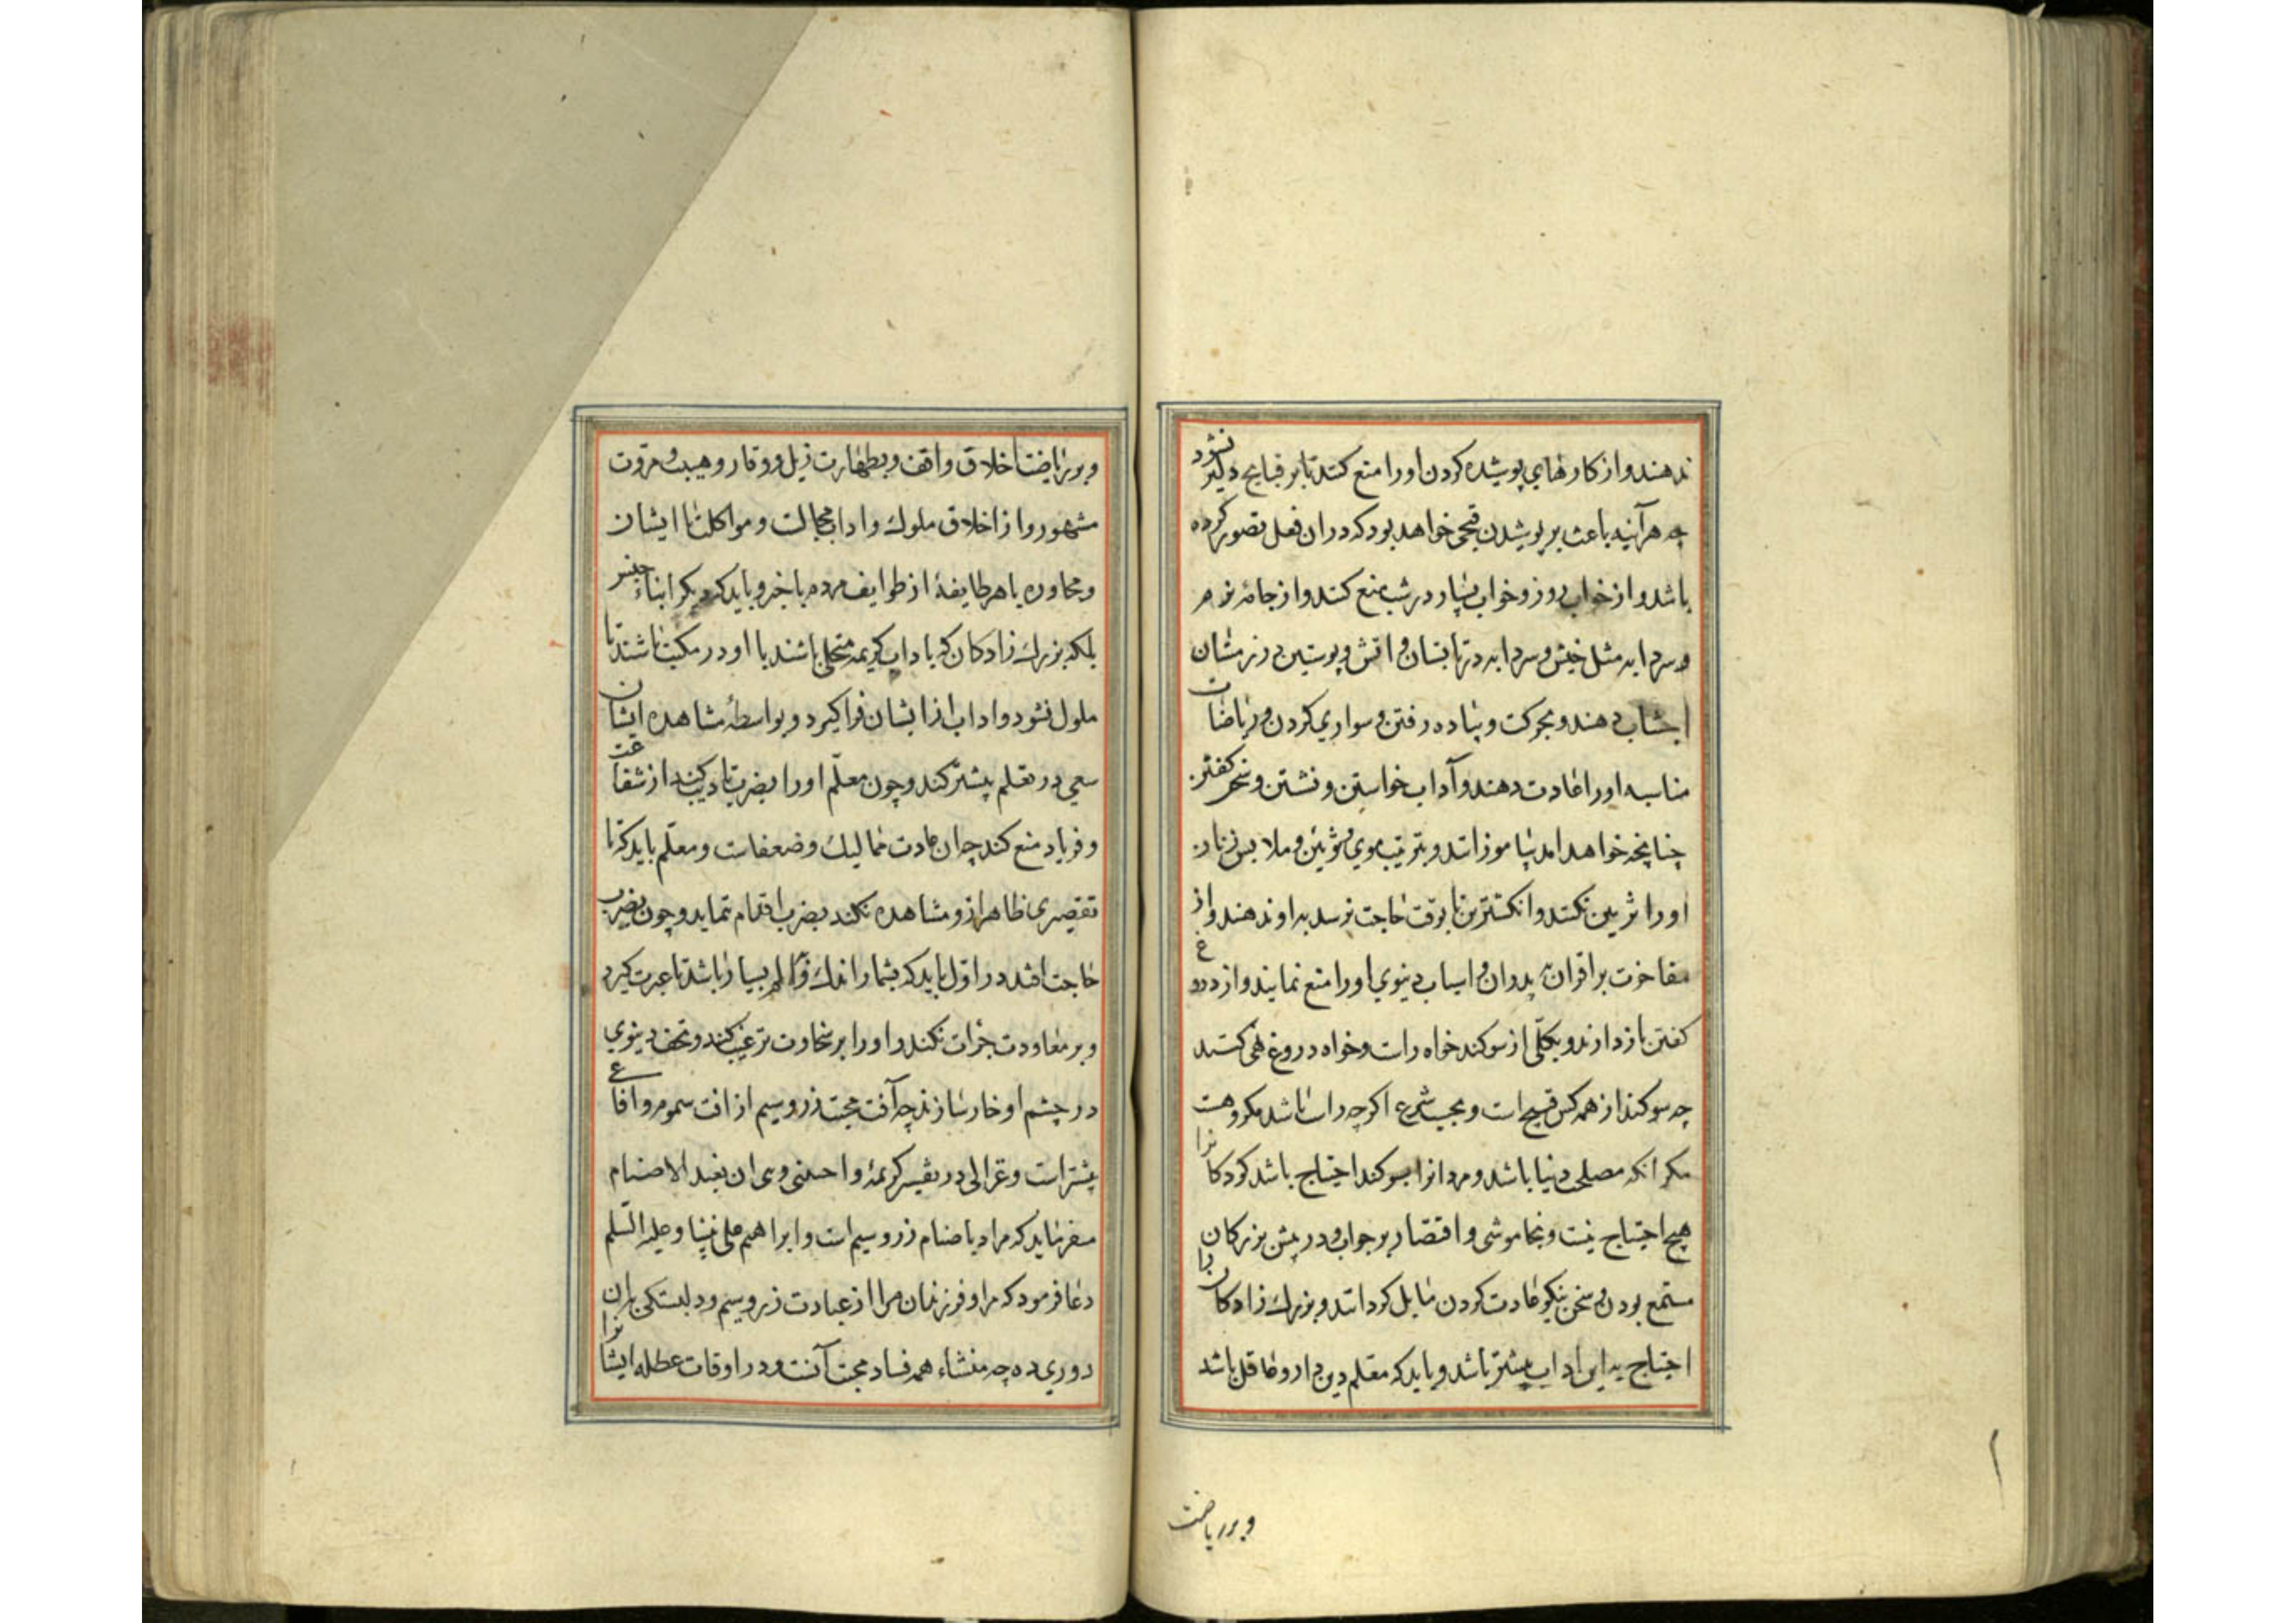 ندهند و از کارهای پوشیده کردن او را منع کنند تا بر قبایح دلیر نشود
چه هرآینه باعث بر پوشیدن قبحی خواهد بود که در ان فعل تصور کرده
باشد و از خواب روز و خواب بسیار در شب منع کنند و از جامهٔ نرم
و سردابه مثل خیش و سردابه در تابستان و اتش و پوستین در زمستان
اجتناب دهند و بحرکت و پیاده رفتن و سواری کردن و ریاضات
مناسبه او را عادت دهند و آداب خواستن و نشستن و سخن گفتن
چنانچه خواهد امد بیاموزانند و بتربیت موی و ملابس زنان
او را تزیین نکنند و انکشترین تا بوقت حاجت نرسد به او ندهند و از
مفاخرت بر اقران به پدران و اسباب دینوی او را منع نمایند و از دروغ
کفتن باز دارند و بکلّی از سوکند خواه راست و خواه دروغ نهی کنند
چه سوکند از همه کس قبیح است و بحسب شرع اکرچه راست باشد مکروهست
مکر انکه مصلحی دنیا باشد و مردانرا بسوکند احتیاج باشد کودکانرا
هیچ احتیاج نیست و بخاموشی و اقتصار بر جواب و در پیش بزرکان
مستمع بودن و سخن نیکو عادت کردن مایل کردانند و بزرک زادکانرا
احتیاج به این اداب بیشتر باشد و باید که معلم دین دار و عاقل باشد
و بر ریاضت
و بر ریاضت اخلاق واقف و بطهارت ذیل و وقار و هیبت و مروّت
مشهور و از اخلاق ملوک و اداب مجالست و مواکلت با ایشان
و محاوره با هر طایفهٔ از طوایف مردم باخبر و باید که دیکر ابناء جنس
بلکه بزرک زادکان که باداب کریمه متحلی باشند با او در مکتب باشند تا
ملول نشود و اداب از ایشان فرا کیرد و بواسطهٔ مشاهده ایشان
سعی در تعلم بیشتر کند و چون معلّم او را بضرب تادیب کند از شفاعت
و فریاد منع کند چه ان عادت ممالیک و ضعفاست و معلّم باید که تا
تقصیری ظاهر ازو مشاهده نکند بضرب اقدام ننماید و چون بضرب
حاجت افتد در اوّل باید که بشمار اندک و الم بسیار باشد تا عبرت کیرد
و بر معاودت جرٔات نکند و او را بر سخاوت ترغیب کند و تحف دینوی
در چشم او خار سازند چه آفت محبت زر و سیم از افت سموم و افاعی
بیشتر است و غزالی در تفسیر کریمهٔ واجنبنی وبنی ان نعبد الاصنام
میفرماید که مراد باصنام زر و سیم است و ابراهیم علی نبینا و علیه السّلم
دعا فرمود که مرا و فرزندان مرا از عبادت زر و سیم و دلبستکی بان
دوری ده چه منشاء همه فساد محبت آنست و در اوقات عطله ایشانرا